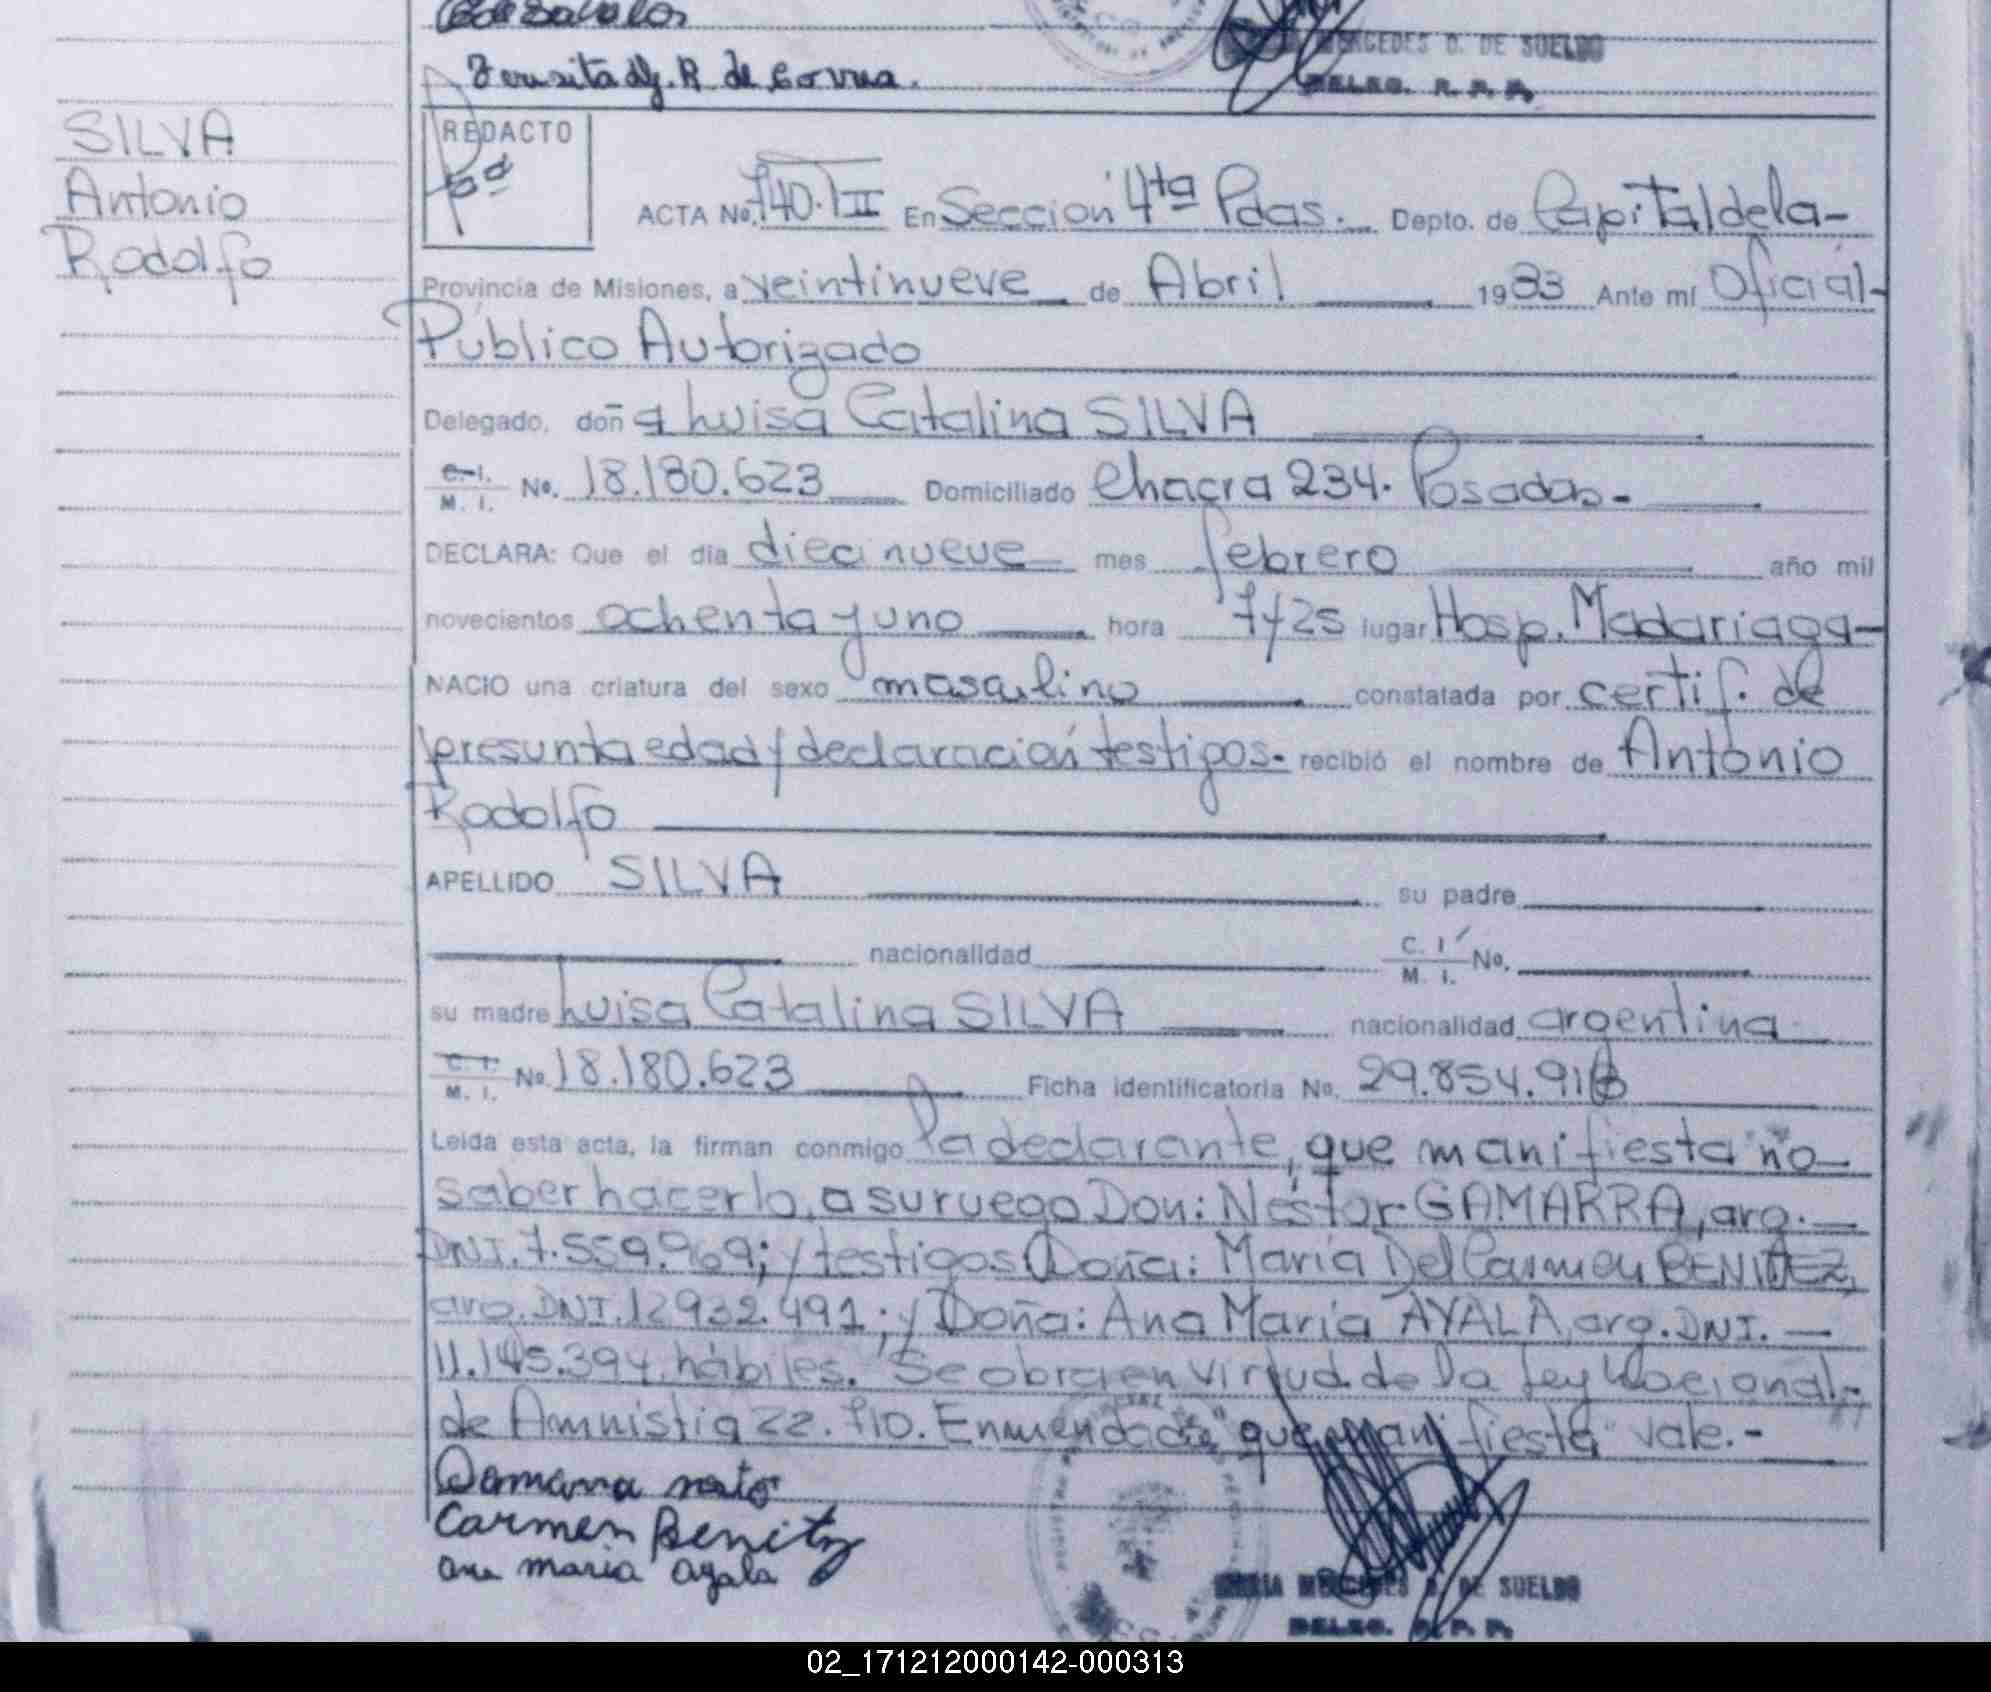 de Davalos
MERCEDES D. DE SUELDO
R. de Correa.
DELEG. R. P. P.
SILVA
Antonio
Rodolfo
REDACTO
ACTA No. 740. T II En Sección 4ta Pdas. Depto. de Capital de la-
Provincia de Misiones, a veintinueve de Abril 1983 Ante mí Oficial-
Público Autorizado
Delegado, doña Luisa Catalina SILVA
C. I. M. I. No. 18.180.623 Domiciliado Chacra 234. Posadas-
DECLARA: Que el día diecinueve mes febrero año mil
novecientos ochenta y uno hora 7y25 lugar Hosp. Madariaga-
NACIO una criatura del sexo masculino constatada por certif. de
presunta edad y declaración testigos- recibió el nombre de Antonio
Rodolfo
APELLIDO SILVA su padre
nacionalidad C. I M. I. No.
su madre Luisa Catalina SILVA nacionalidad argentina
C. I. M. I. No 18.180.623 Ficha identificatoria No. 29.854.91
Leída esta acta, la firman conmigo la declarante, que manifiesta no
saber hacerlo, a su ruego Don: Néstor GAMARRA, arg.-
DNI. 7.559.969; y testigos Doña: María Del Carmen BENITEZ,
arg. DNI. 12932.491; y Doña: Ana María AYALA, arg. DNI.-
11.145.394, hábiles. Se obra en virtud de la Ley Nacional-
de Amnistia 22.710. Enmendado "que manifiesta" vale.-
Gamarra
Carmen Benitez
ana maria ayala
MARIA MERCEDES D. DE SUELDO
DELEG. R. P. P.
02_171212000142-000313